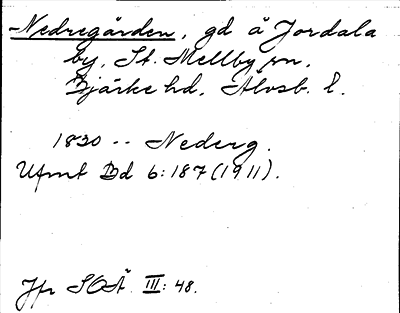 Nedregården, gd å Jordala
by, St. Mellby sn.
Bjärke hd, Älvsb. l.
1830 -- Nederg.
Ufmt Bd 6:187 (1911).
Jfr SOÄ III: 48.